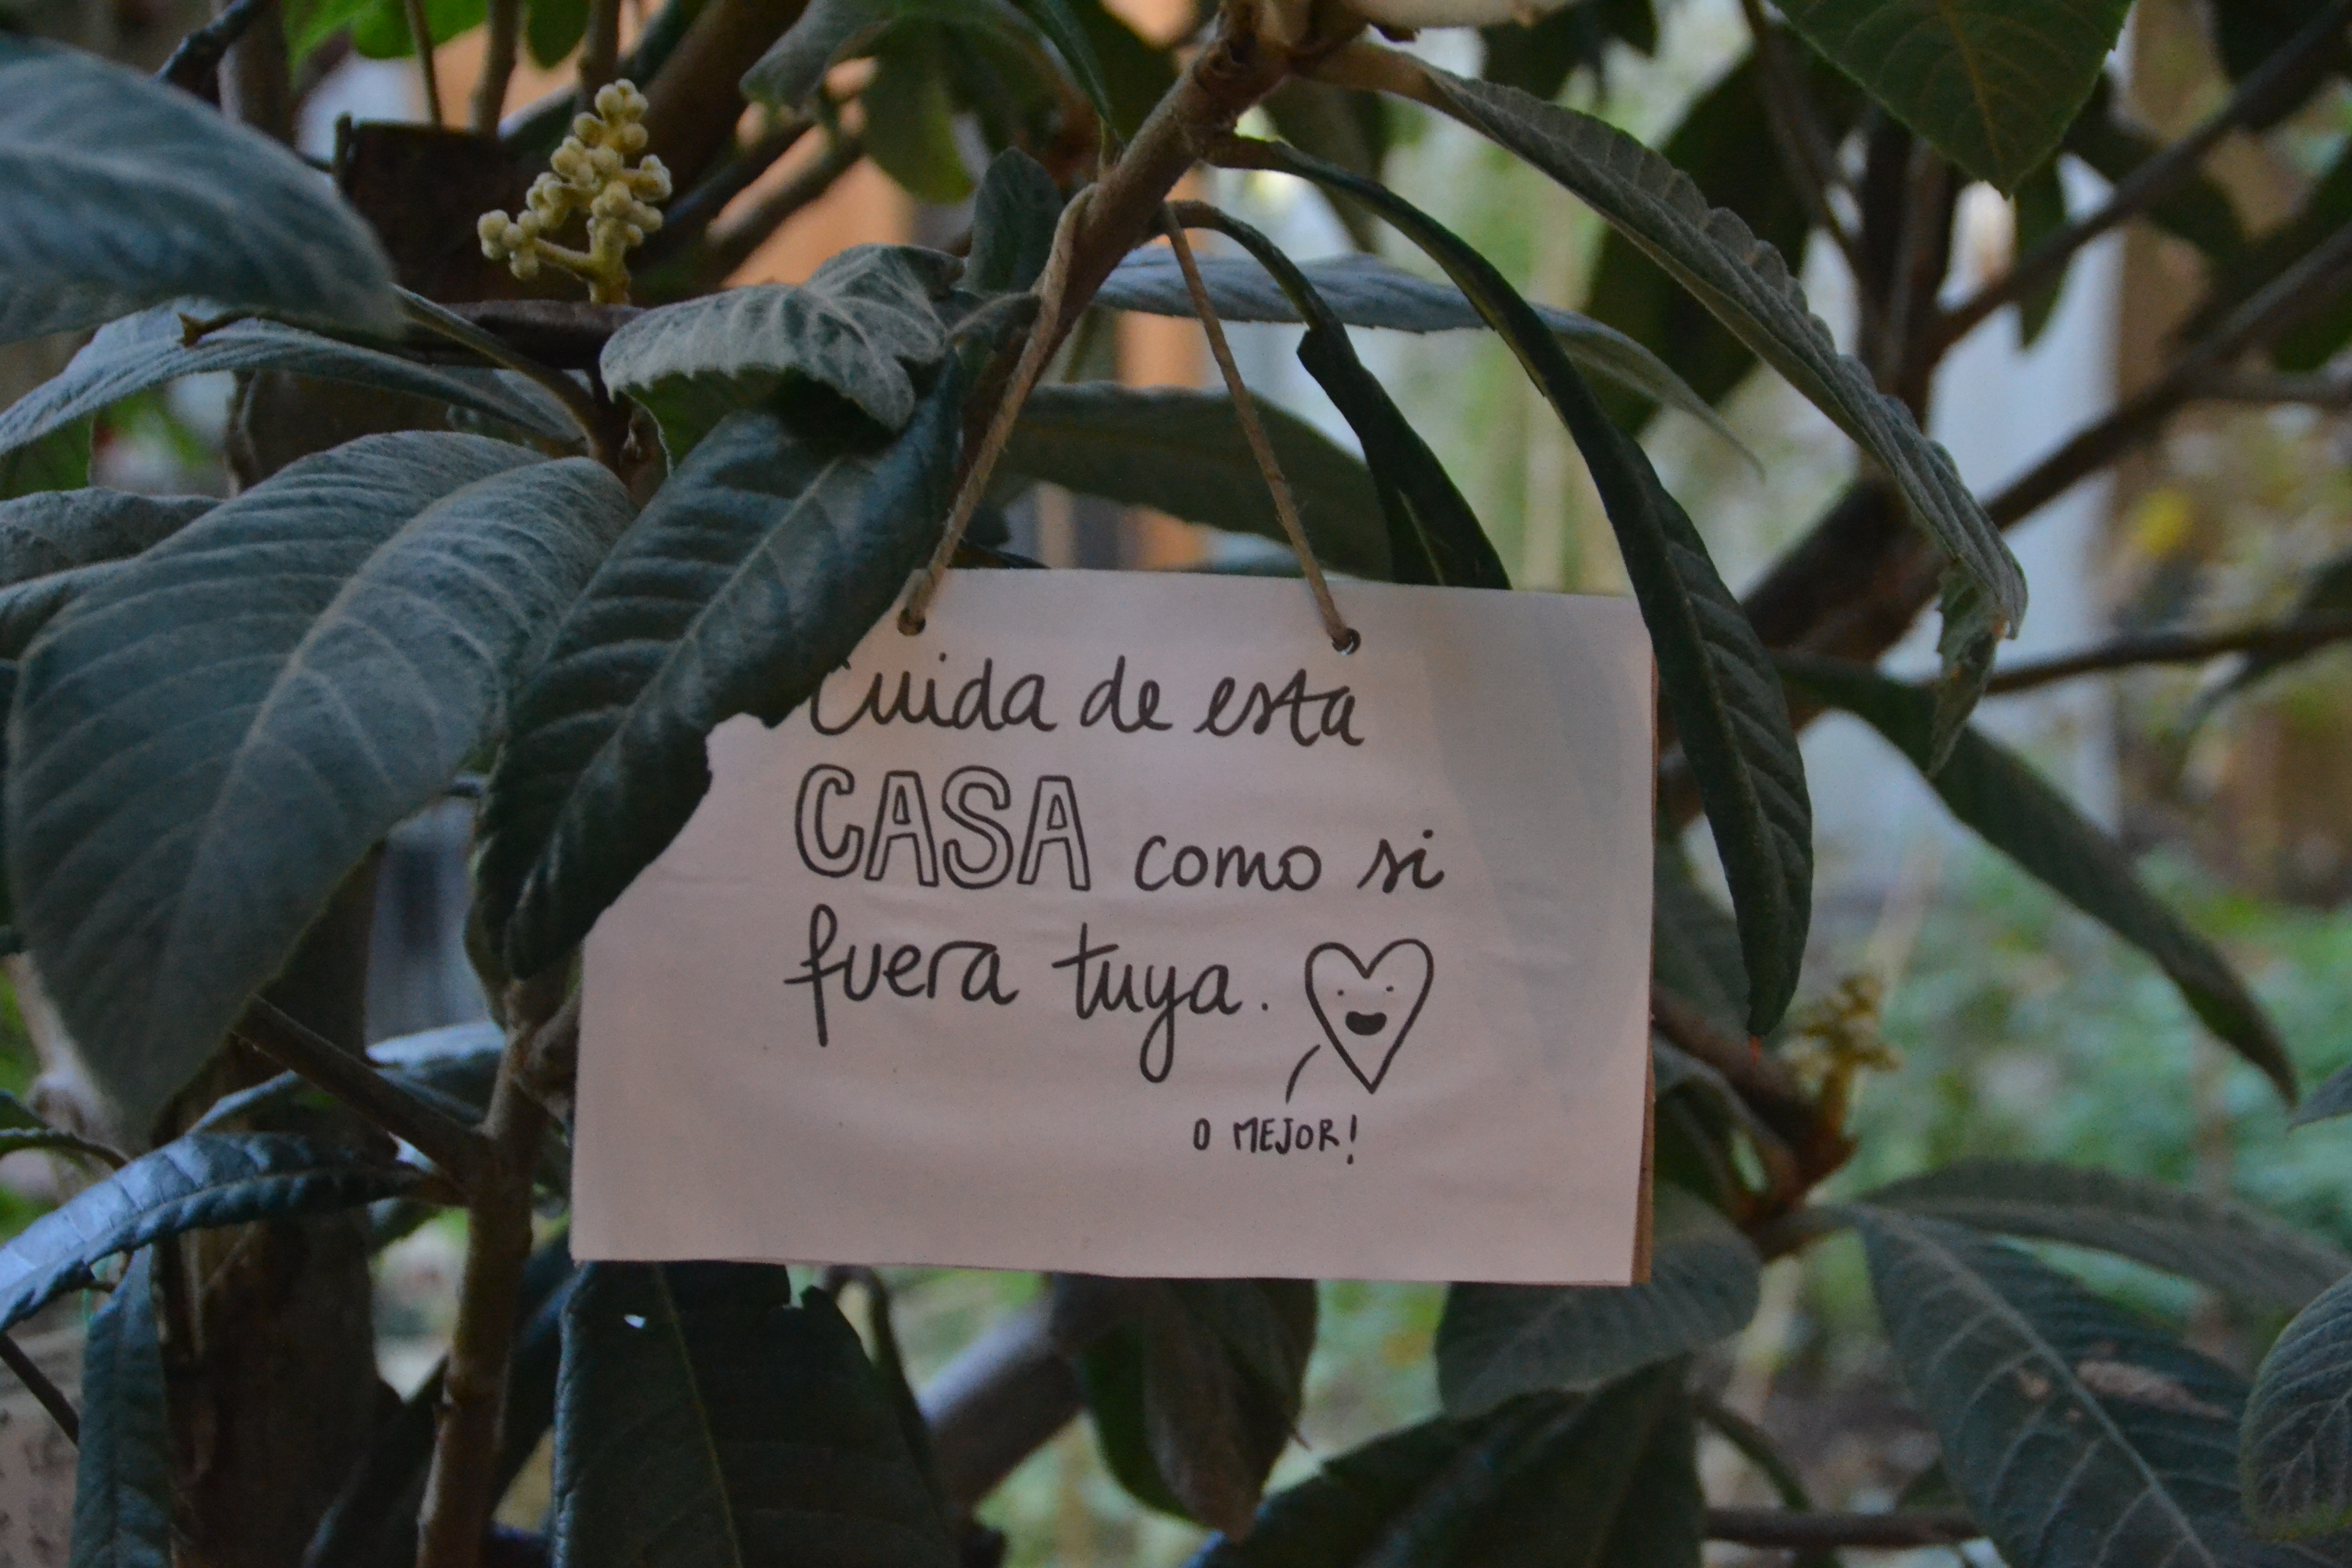 Cuida de esta
CASA como si
fuera tuya.
O MEJOR!